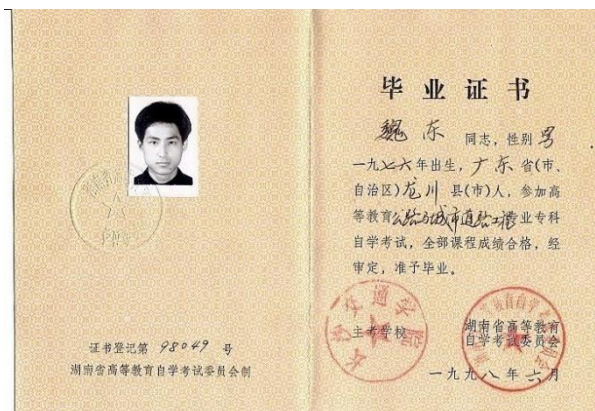 证书登记第 98049 号
湖南省高等教育自学考试委员会制
毕业证书
魏东 同志，性别 男
一九七六年出生，广东省(市、
自治区)龙川县(市)人，参加高
等教育公路与城市道路工程专业专科
自学考试，全部课程成绩合格，经
审定，准予毕业。
长沙交通学院
主考学校
湖南省高等教育
自学考试委员会
一九九八年六月